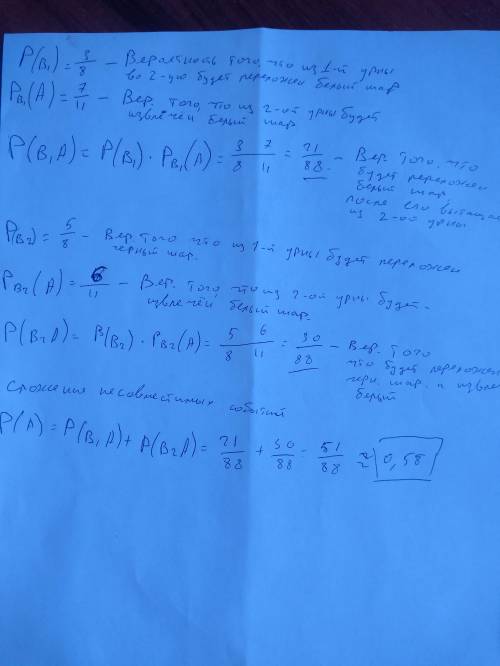 P(B₁) = 3/8 – Вероятность того, что из 1-й урны
во 2-ую будет переложен белый шар
P_B₁(A) = 7/11 – Вер. того, что из 2-ой урны будет
извлечён белый шар.
P(B₁A) = P(B₁) · P_B₁(A) = 3/8 · 7/11 = 21/88 – Вер. того, что
будет переложен
белый шар
после его вытащ
из 2-ой урны
P(B₂) = 5/8 – Вер. того что из 1-й урны будет переложен
черный шар.
P_B₂(A) = 6/11 – Вер. того, что из 2-ой урны будет
извлечён белый шар.
P(B₂A) = P(B₂) · P_B₂(A) = 5/8 · 6/11 = 30/88 – Вер. того
что будет переложен
черн. шар. и извле
белый
Сложения несовместимых событий
P(A) = P(B₁A) + P(B₂A) = 21/88 + 30/88 = 51/88 ≈ 0,58